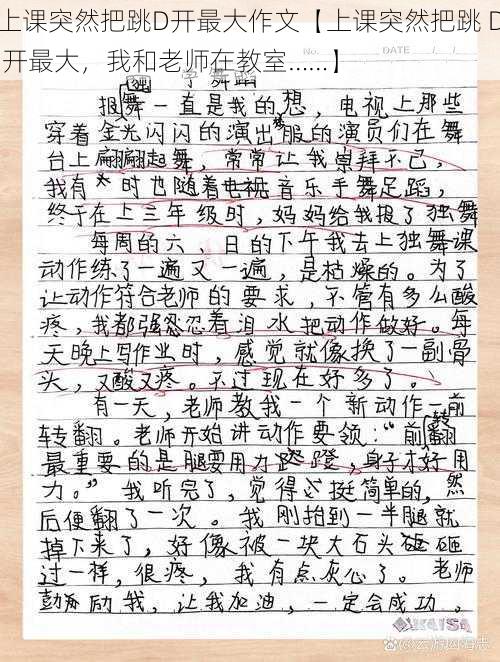 上课突然把跳D开最大作文【上课突然把跳 D
开最大，我和老师在教室......】
学舞蹈
报舞一直是我的想，电视上那些
穿着金光闪闪的演出服的演员们在舞
台上翩翩起舞，常常让我崇拜不已，
我有时也随着电视音乐手舞足蹈，
终于在上三年级时，妈妈给我报了独舞
每周的六、日的下午我去上独舞课
动作练了一遍又一遍，是枯燥的。为了
让动作符合老师的要求，不管有多么酸
疼，我都强忍忍着泪水把动作做好。每
天晚上写作业时，感觉就像换了一副骨
头，又酸又疼。不过现在好多了。
有一天，老师教我一个新动作一前
转翻。老师开始讲动作要领：“前转翻
最重要的是腿要用力蹬，身子才好用
力。”我听完了，觉得挺简单的，然
后便翻了一次。我刚拍到一半腿就
掉下来了，好像被一块大石头砸砸
过一样，很疼，我有点灰心了。老师
鼓励我，让我加油，一定会成功。